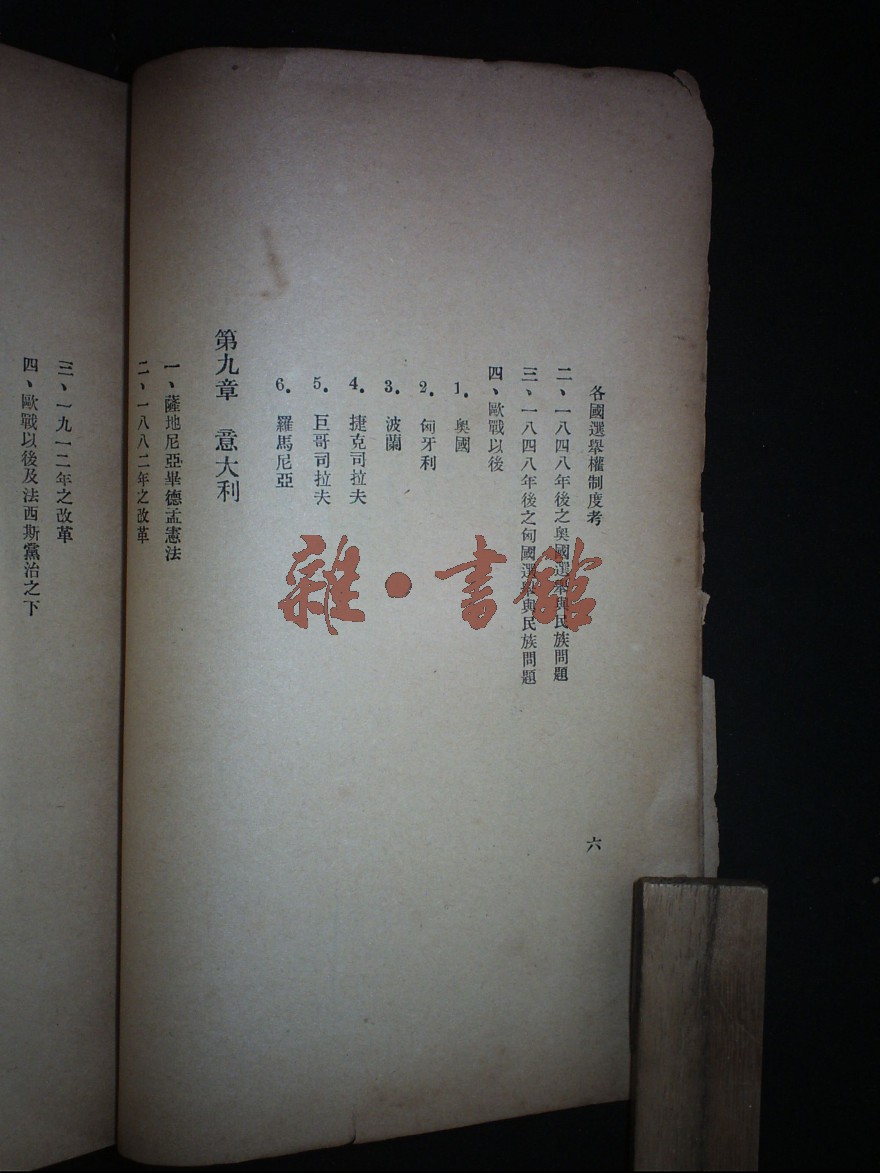 各國選舉權制度考
六
二、一八四八年後之奧國選舉與民族問題
三、一八四八年後之匈國選舉與民族問題
四、歐戰以後
1. 奧國
2. 匈牙利
3. 波蘭
4. 捷克司拉夫
5. 巨哥司拉夫
6. 羅馬尼亞
第九章 意大利
一、薩地尼亞畢德孟憲法
二、一八八二年之改革
三、一九一二年之改革
四、歐戰以後及法西斯黨治之下
雜·書館